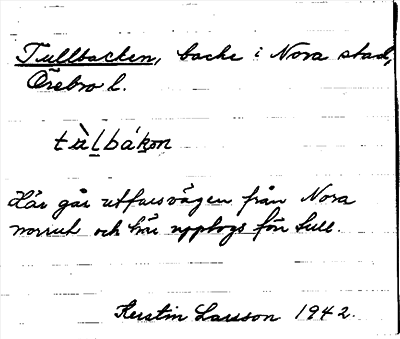 Tullbacken, backe i Nora stad,
Örebro l.
tàlbákən
Här går utfarsvägen från Nora
norrut och här upptogs förr tull.
Kerstin Larsson 1942.